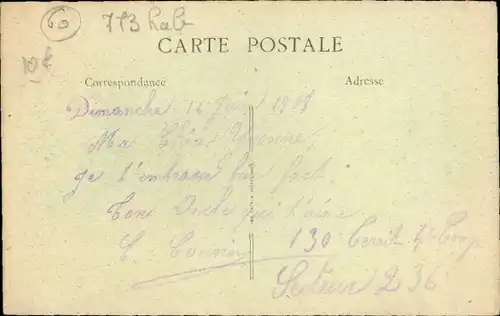 60 713 hab
10€
CARTE POSTALE
Correspondance
Adresse
Dimanche 16 Juin 1918
Ma Chère Yvonne,
Je t'embrasse bien fort.
Ton Oncle qui t'aime
130 Territ 4e Comp
Secteur 236